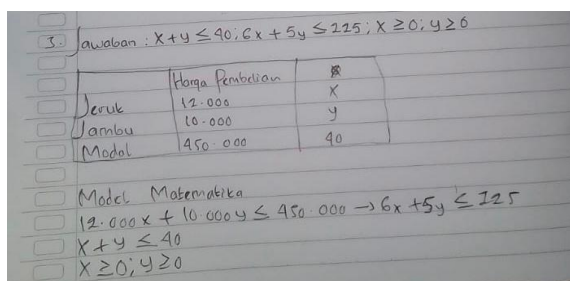 3. Jawaban : X+y ≤ 40; 6x + 5y ≤ 225; X ≥ 0; y ≥ 0
Harga Pembelian
Jeruk 12.000 X
Jambu 10.000 y
Modal 450.000 40
Model Matematika
12.000x + 10.000y ≤ 450.000 → 6x + 5y ≤ 225
X + y ≤ 40
X ≥ 0; y ≥ 0